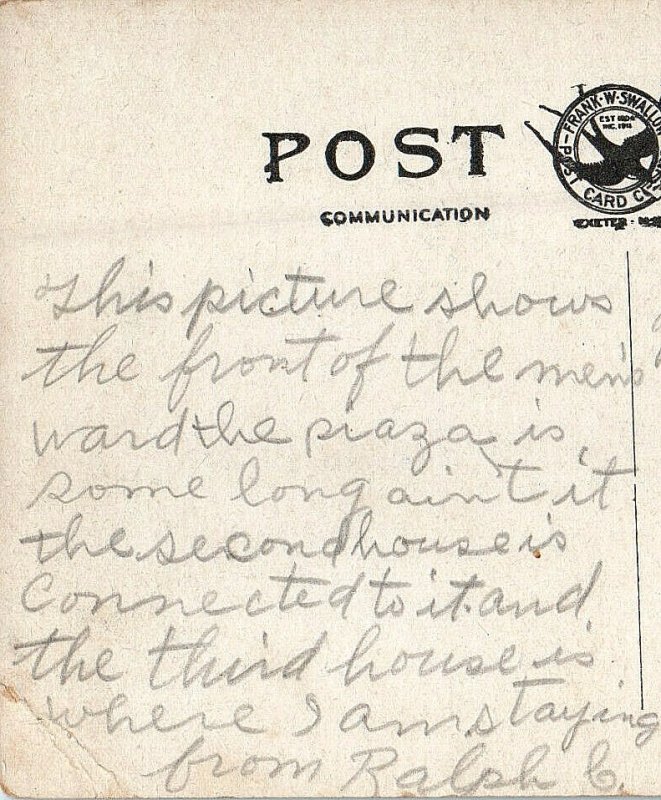 POST
FRANK·W·SWALLOW
EST 1904
INC. 1911
POST CARD CO.
EXETER - N.H.
COMMUNICATION
This picture shows
the front of the men's
ward the piaza is
some long ain't it
the second house is
Connected to it and
the third house is
where I am staying
from Ralph C.